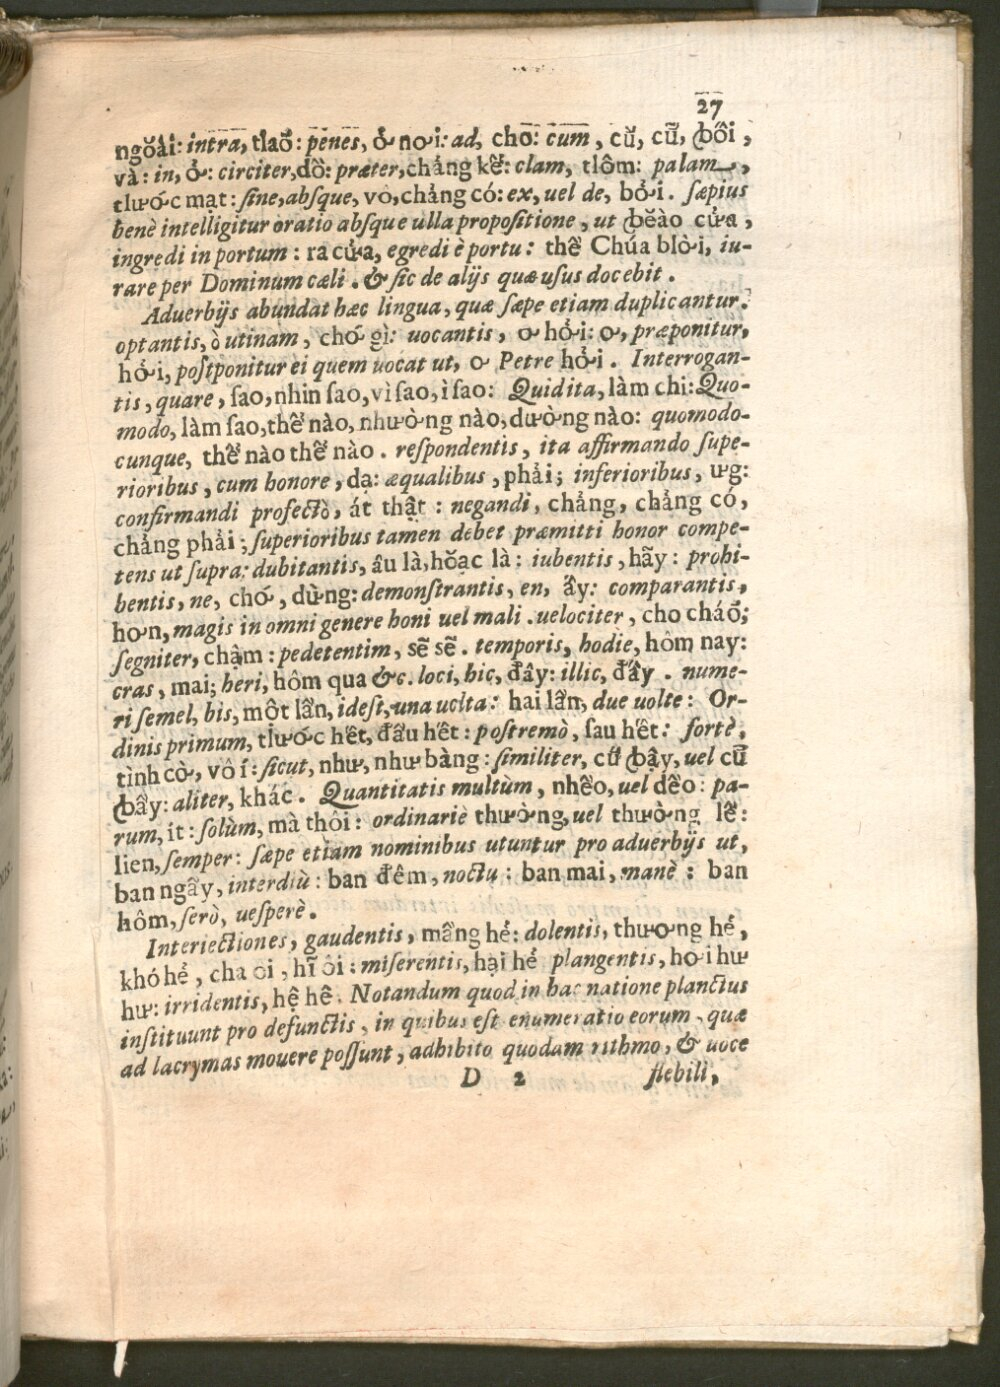 27
ngŏài: intra, tlaõ: penes, ở nơi: ad, cho: cum, cũ, cũ, ꞗối,
và: in, ở: circiter, dồ: præter, chẳng kể: clam, tlôm: palam,
tlước mạt: ſine, abſque, vô, chẳng có: ex, uel de, bởi. ſæpius
benè intelligitur oratio abſque ulla propoſitione, ut ꞗĕào cửa,
ingredi in portum: ra cửa, egredi è portu: thề Chúa blời, iu-
rare per Dominum cæli. & ſic de alijs quæ uſus docebit.
Aduerbijs abundat hæc lingua, quæ ſæpe etiam duplicantur.
optantis, ò utinam, chớ gì: uocantis, ơ hởi: ơ, præponitur,
hởi, poſtponitur ei quem uocat ut, ơ Petre hởi. Interrogan-
tis, quare, ſao, nhin ſao, vì ſao, ì ſao: Quidita, làm chi: Quo-
modo, làm ſao, thể nào, nhường nào, dường nào: quomodo-
cunque, thể nào thể nào. reſpondentis, ita affirmando ſupe-
rioribus, cum honore, dạ: æqualibus, phải; inferioribus, ưg:
confirmandi profectò, át thật: negandi, chẳng, chẳng có,
chẳng phải; ſuperioribus tamen debet præmitti honor compe-
tens ut ſupra: dubitantis, âu là, hŏạc là: iubentis, hãy: prohi-
bentis, ne, chớ, dừng: demonſtrantis, en, ấy: comparantis,
hơn, magis in omni genere boni uel mali. uelociter, cho cháõ;
ſegniter, chậm: pedetentim, sẽ sẽ. temporis, hodie, hôm nay:
cras, mai; heri, hôm qua &c. loci, hic, đây: illic, đấy. nume-
ri ſemel, bis, một lần, ideſt, una uolta: hai lần, due uolte: Or-
dinis primum, tlước hết, đầu hết: poſtremò, ſau hết: fortè,
tình cờ, vô í: ſicut, như, như bàng: ſimiliter, cũ ꞗậy, uel cũ
ꞗầy: aliter, khác. Quantitatis multùm, nhềo, uel dềo: pa-
rum, ít: ſolùm, mà thôi: ordinariè thường, uel thường lề:
lien, ſemper: ſæpe etiam nominibus utuntur pro aduerbijs ut,
ban ngầy, interdiù: ban đêm, noctu: ban mai, manè: ban
hôm, ſerò, ueſperè.
Interiectiones, gaudentis, mầng hẻ: dolentis, thương hẻ,
khó hẻ, cha ôi, hĩ ôi: miſerentis, hại hẻ plangentis, hơi hư
hư: irridentis, hệ hê. Notandum quod in hac natione planctus
inſtituunt pro defunctis, in quibus eſt enumeratio eorum, quæ
ad lacrymas mouere poſſunt, adhibito quodam rithmo, & uoce
D 2 flebili,